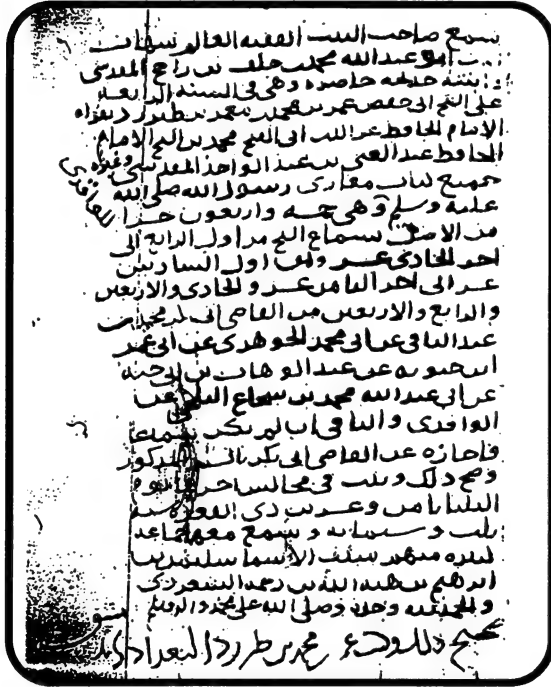 سمع صاحب البيت الفقيه العالم
أبو عبد الله محمد بن خلف بن راجح المقدسي
حاضرة وهي في السنة الرابعة
على الشيخ ابي حفص عمر بن محمد بن معمر بن طبرزد بقراءة
الامام الحافظ عز الدين ابي الفتح محمد بن الشيخ الامام
الحافظ عبد الغني بن عبد الواحد المقدسي
جميع كتاب مغازي رسول الله صلى الله
عليه وسلم وهي خمسة واربعون جزءا
من الاصل سماع الشيخ من اول الرابع الى
اخر الحادي عشر ومن اول السادس
عشر الى اخر الثامن عشر والحادي والاربعين
والرابع والاربعين من القاضي ابي بكر محمد بن
عبد الباقي عن ابي محمد الجوهري عن ابي عمر
ابن حيويه عن عبد الوهاب بن ابي حية
عن ابي عبد الله محمد بن شجاع الثلجي عن
الواقدي والباقي ان لم يكن سماعا
فاجازة عن القاضي ابي بكر المذكور
وصح ذلك وثبت في مجالس اخرها يوم
الثلثا ثامن وعشرين ذي القعدة سنة
ثلث وستمائة وسمع معهم جماعة
كثيرة منهم مثبت الاسما
ابراهيم بن هبة الله بن رحمة
والحمد لله وحده وصلى الله على محمد واله وسلم
صحيح ذلك وكتب عمر بن محمد بن طبرزد البغدادي
للواقدي